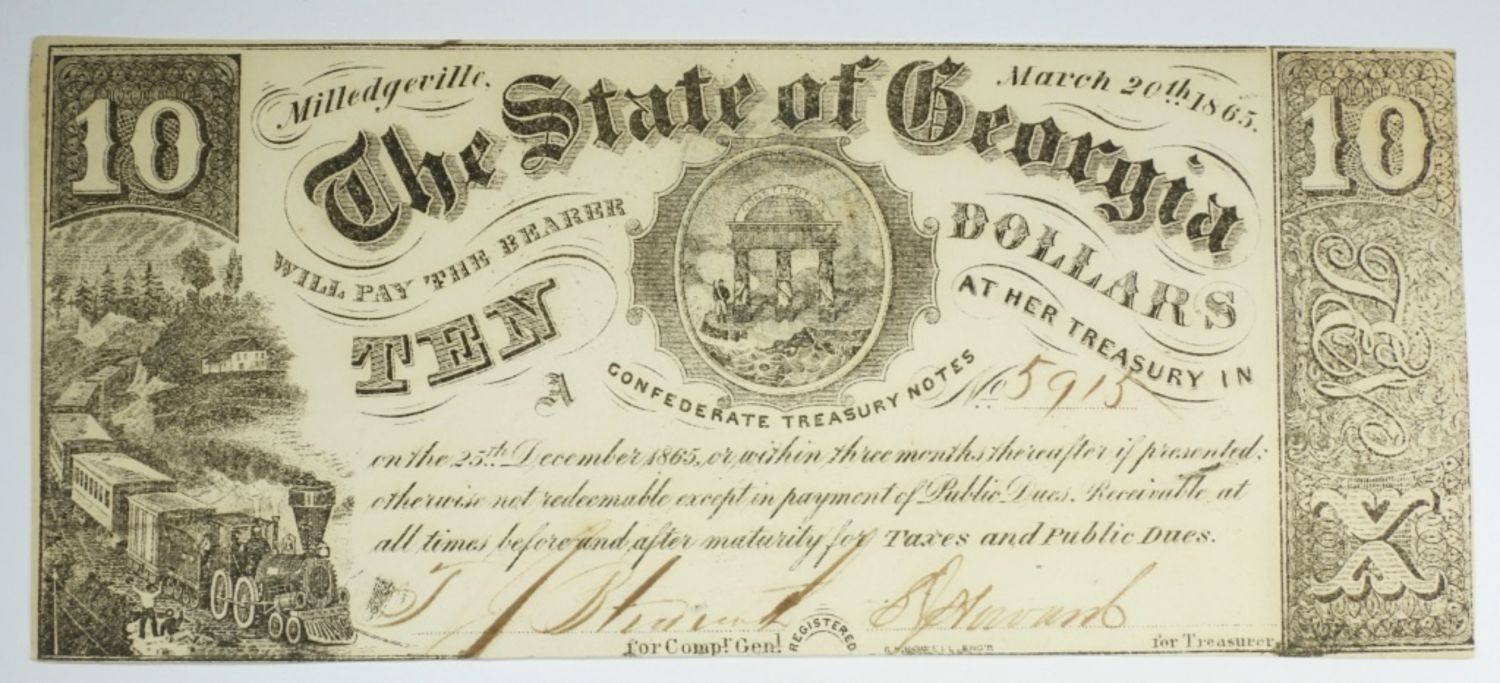 10
Milledgeville.
March 20th 1865.
10
The State of Georgia
WILL PAY THE BEARER
TEN
DOLLARS
AT HER TREASURY IN
CONFEDERATE TREASURY NOTES
A
No 5915
on the 25th December 1865, or within three months thereafter if presented;
otherwise not redeemable except in payment of Public Dues. Receivable at
all times before and after maturity for Taxes and Public Dues.
for Compt. Genl.
REGISTERED
for Treasurer
TEN
X